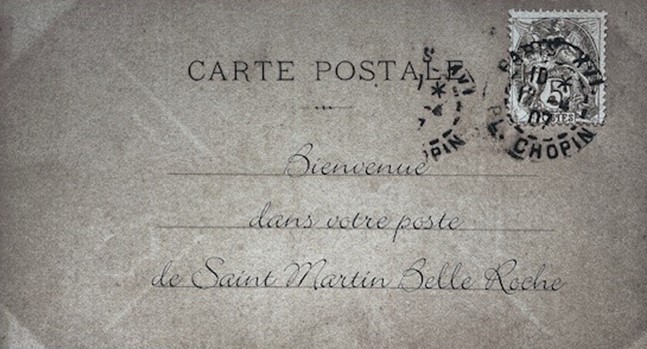 CARTE POSTALE
PARIS XVI
10 *
5
POSTES
07
PL. CHOPIN
S XVI
*
OPIN
Bienvenue
dans votre poste
de Saint Martin Belle Roche